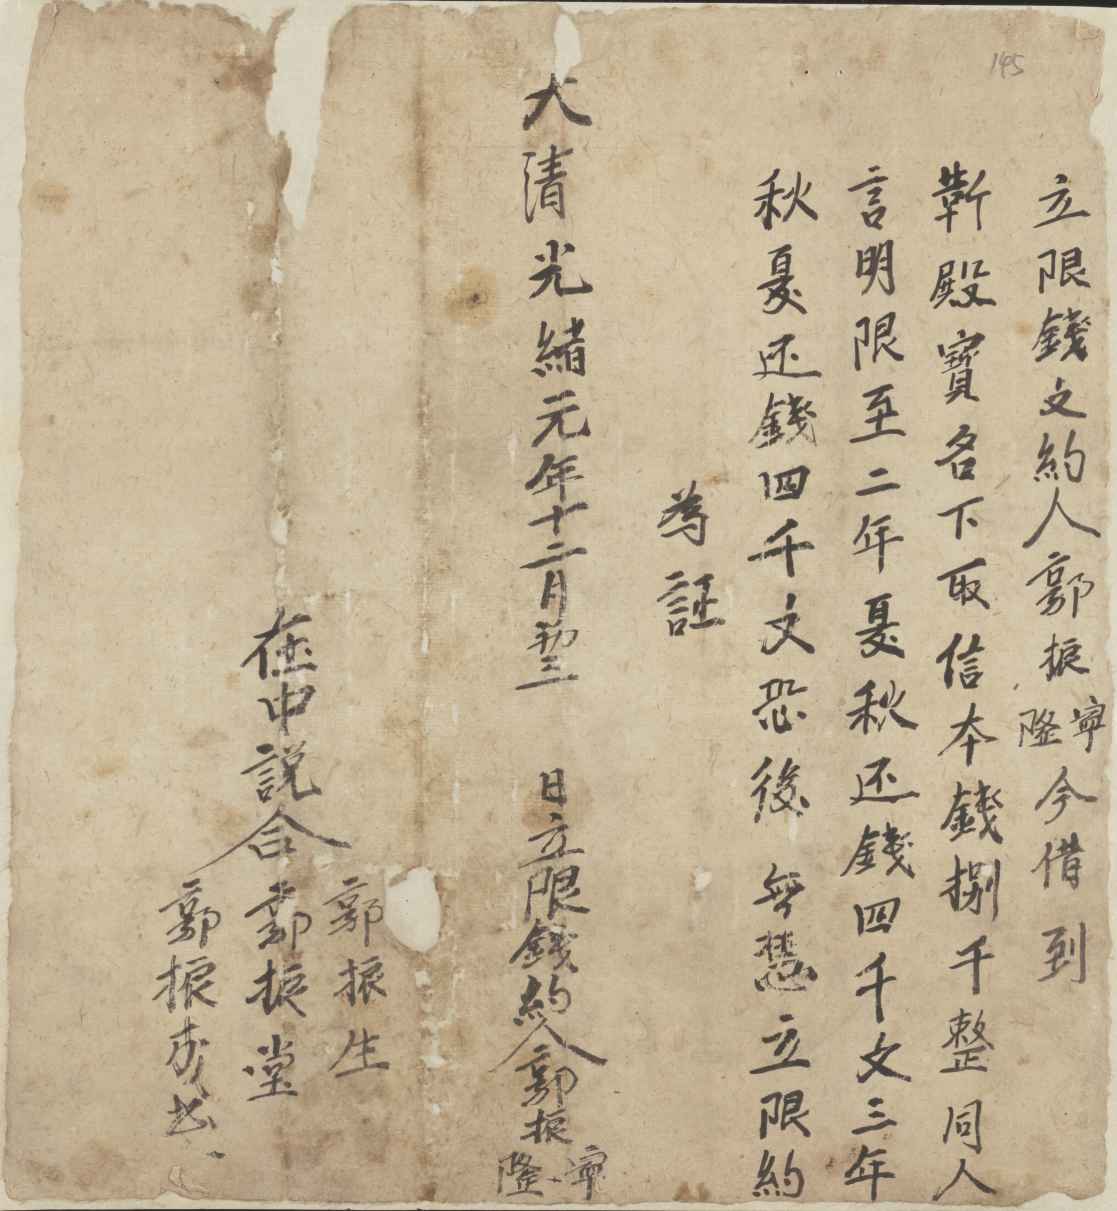 145
立限錢文約人郭振寧隆今借到
靳殿寶名下取信本錢捌千整同人
言明限至二年夏秋还錢四千文三年
秋夏还錢四千文恐後無慿立限約
為証
大清光緒元年十二月初三日立限錢約人郭振寧隆
在中説合
郭振生
郭振堂
郭振成書